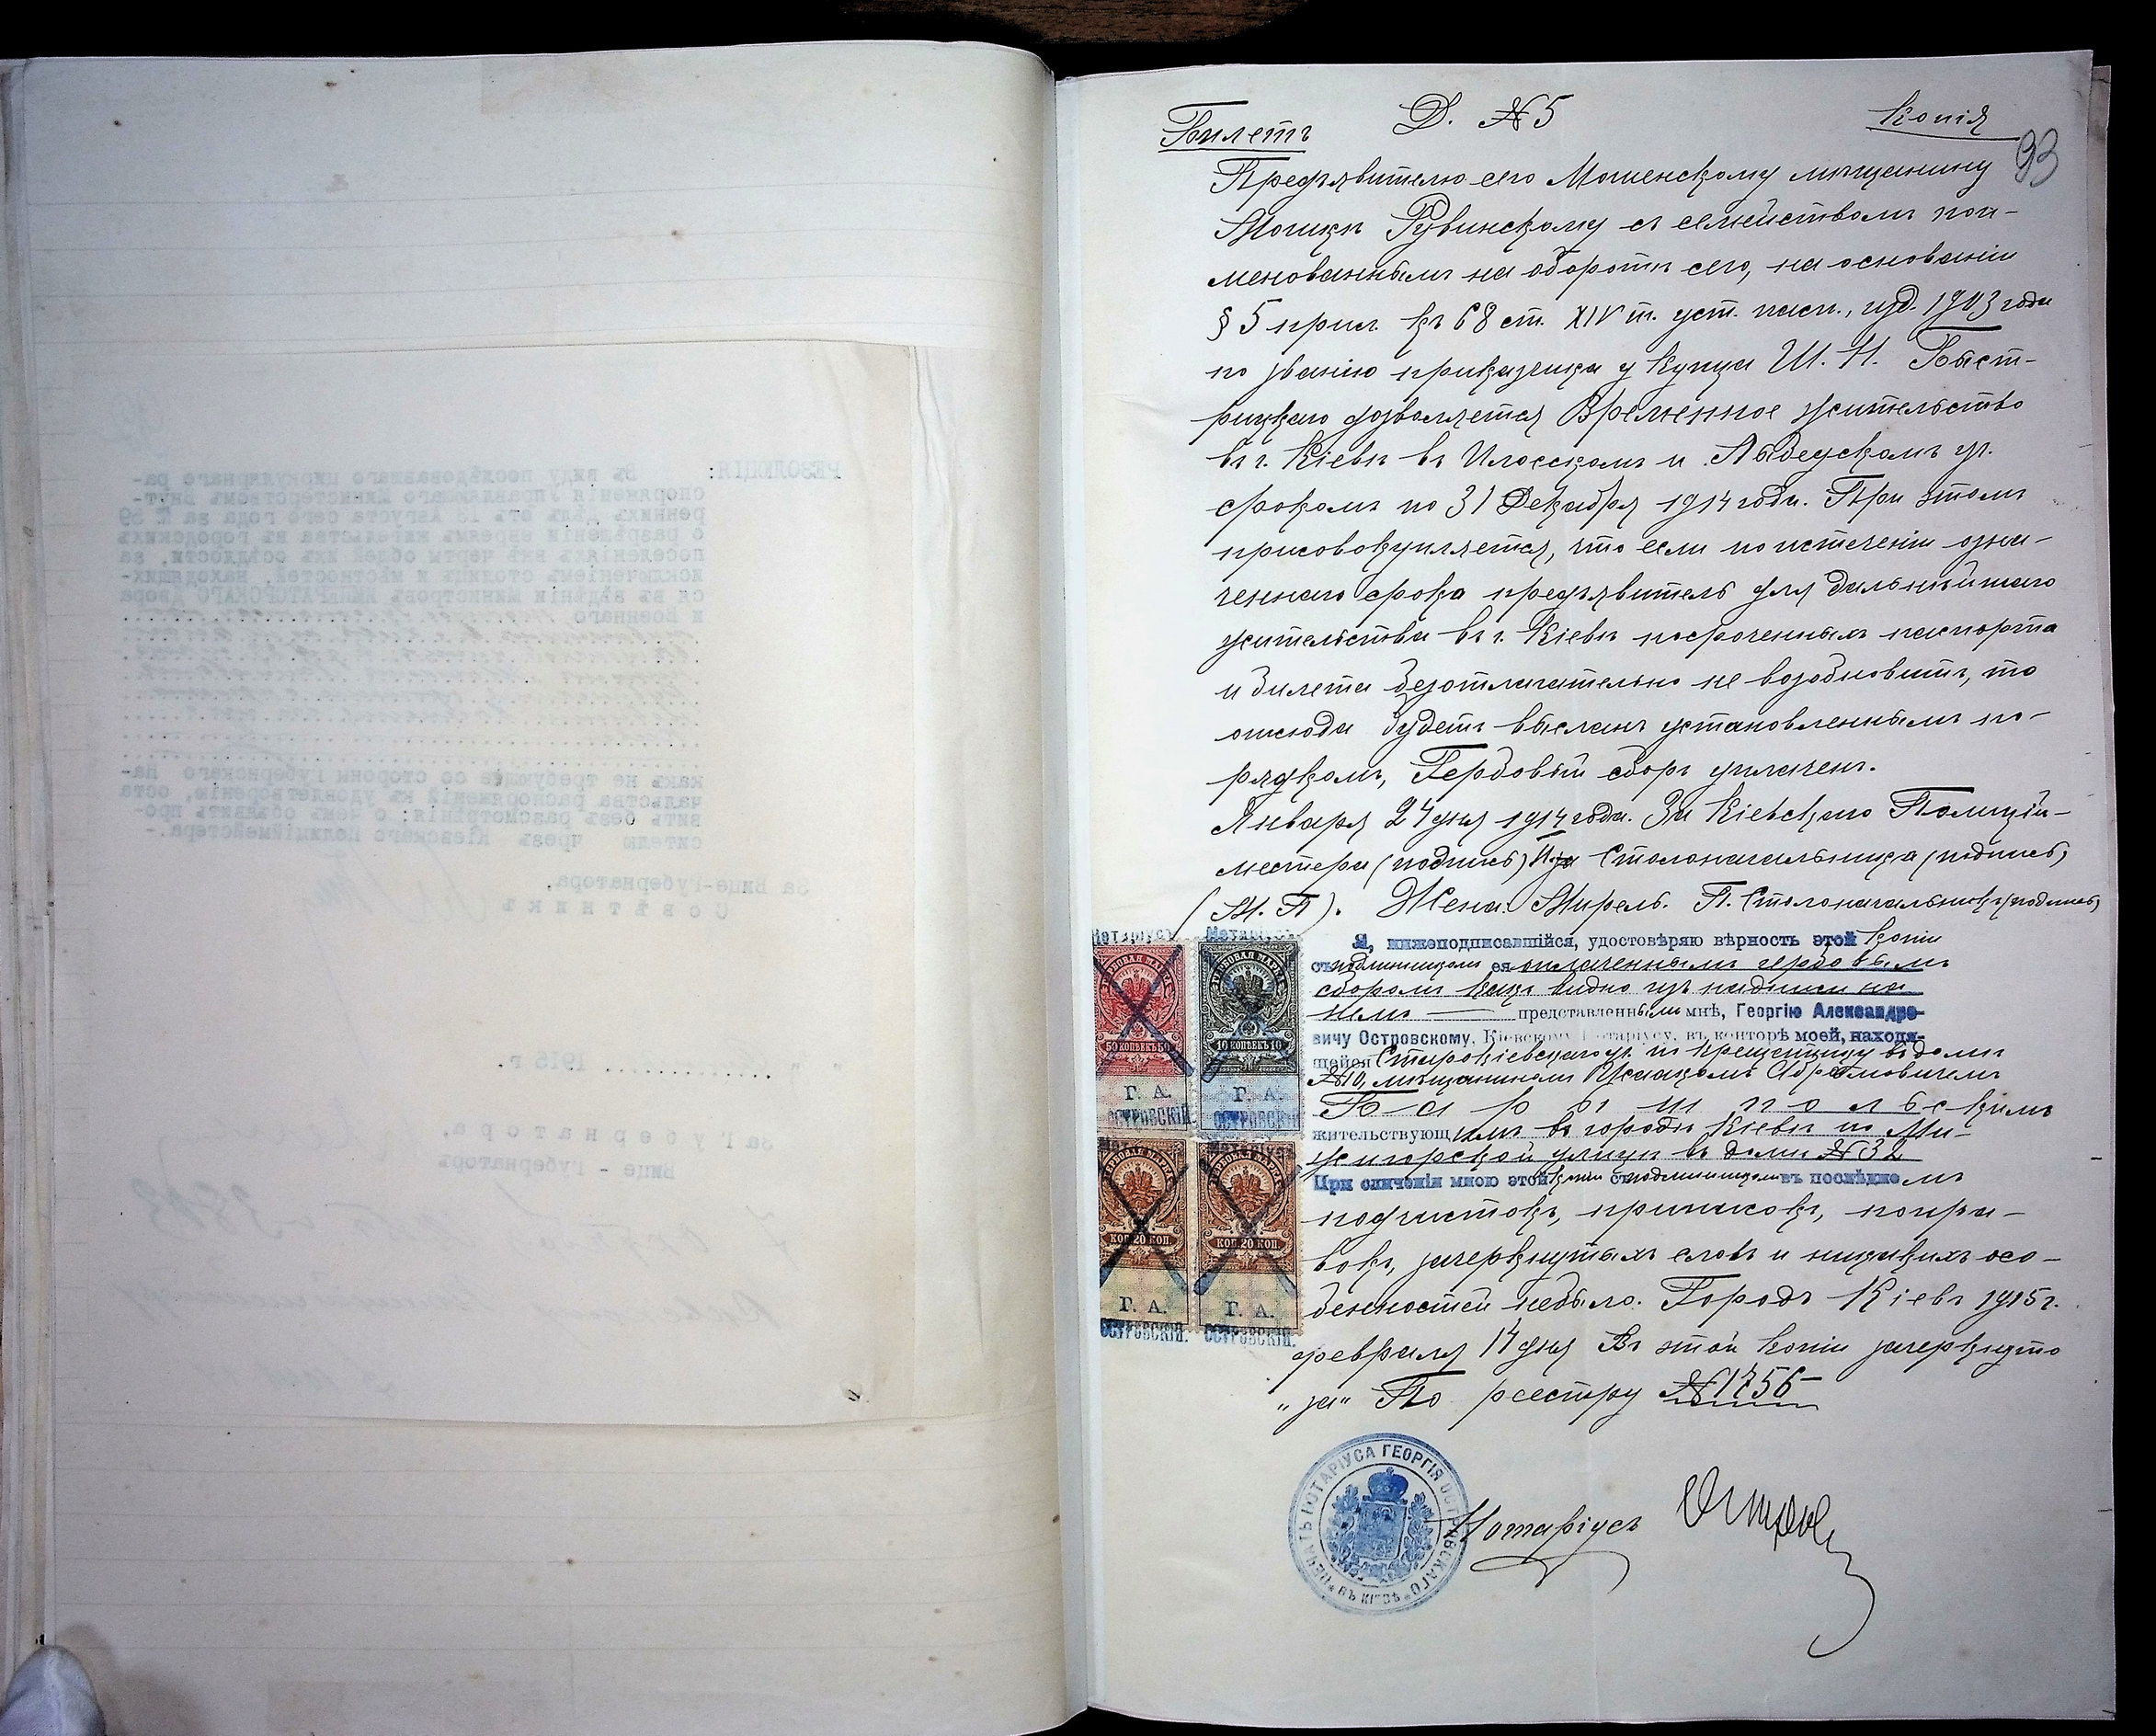 Билетъ
Д. № 5
Копія
93
Предъявителю сего Мошенскому мѣщанину
Мошкѣ Рувинскому съ семействомъ пои-
менованнымъ на оборотѣ сего, на основаніи
§ 5 прил. къ 68 ст. XIV т. уст. пасп., изд. 1903 года
по званію приказчика у купца Ш. Н. Быст-
рицкаго дозволяется временное жительство
въ г. Кіевѣ въ Плосскомъ и Лыбедскомъ уч.
срокомъ по 31 Декабря 1914 года. При этомъ
присовокупляется, что если по истеченіи озна-
ченнаго срока предъявитель для дальнѣйшаго
жительства въ г. Кіевѣ посроченныхъ паспорта
и билета безотлагательно не возобновитъ, то
отсюда будетъ высланъ установленнымъ по-
рядкомъ, Гербовый сборъ уплаченъ.
Января 24 дня 1914 года. За Кіевскаго Полицій-
местера (подпись) И за Столоначальника (подпись)
(М. П). Жена: Мирель. П. Столоначальникъ (подпись)
Я, нижеподписавшійся, удостовѣряю вѣрность этой копіи
съ подлинникомъ ея оплаченнымъ гербовымъ
сборомъ какъ видно изъ надписи на
немъ — представленнымъ мнѣ, Георгію Александро-
вичу Островскому, Кіевскому Нотаріусу, въ конторѣ моей, находя-
щейся Старокіевскаго уч. по Крещатику въ домѣ
№ 10, мѣщаниномъ Исаакомъ Абрамовичемъ
Барышпольскимъ
жительствующимъ въ городѣ Кіевѣ по Ме-
жигорской улицѣ въ домѣ № 32
При сличеніи мною этой копіи съ подлинникомъ въ послѣднемъ
подчистокъ, приписокъ, попра-
вокъ, зачеркнутыхъ словъ и никакихъ осо-
бенностей небыло. Городъ Кіевъ 1915 г.
февраля 14 дня Въ этой копіи зачеркнуто
„за“ По реестру № 1756
Нотаріусъ
Нотаріусъ
Нотаріусъ
ГЕРБОВАЯ МАРКА
50 КОПѢЕКЪ 50
Г. А.
ОСТРОВСКІЙ.
ГЕРБОВАЯ МАРКА
10 КОПѢЕКЪ 10
Г. А.
ОСТРОВСКІЙ.
ГЕРБОВАЯ МАРКА
КОП. 20 КОП.
Г. А.
ОСТРОВСКІЙ.
ГЕРБОВАЯ МАРКА
КОП. 20 КОП.
Г. А.
ОСТРОВСКІЙ.
ПЕЧАТЬ НОТАРІУСА ГЕОРГІЯ ОСТРОВСКАГО * ВЪ КІЕВѢ *
РЕЗОЛЮЦІЯ: Въ виду послѣдовавшаго циркулярнаго ра-
споряженія Управляющаго Министерствомъ Внут-
реннихъ Дѣлъ отъ 15 Августа сего года за № 39
о разрѣшеніи евреямъ жительства въ городскихъ
поселеніяхъ внѣ черты общей ихъ осѣдлости, за
исключеніемъ столицъ и мѣстностей, находящих-
ся въ вѣдѣніи Министровъ ИМПЕРАТОРСКАГО Двора
и Военнаго
какъ не требующее со стороны Губернскаго На-
чальства распоряженій къ удовлетворенію, оста
вить безъ разсмотрѣнія: о чемъ объявить про-
сителю чрезъ Кіевскаго Полиціймейстера.-
За Вице-Губернатора,
Совѣтникъ
1915 г.
За Губернатора,
Вице - Губернаторъ